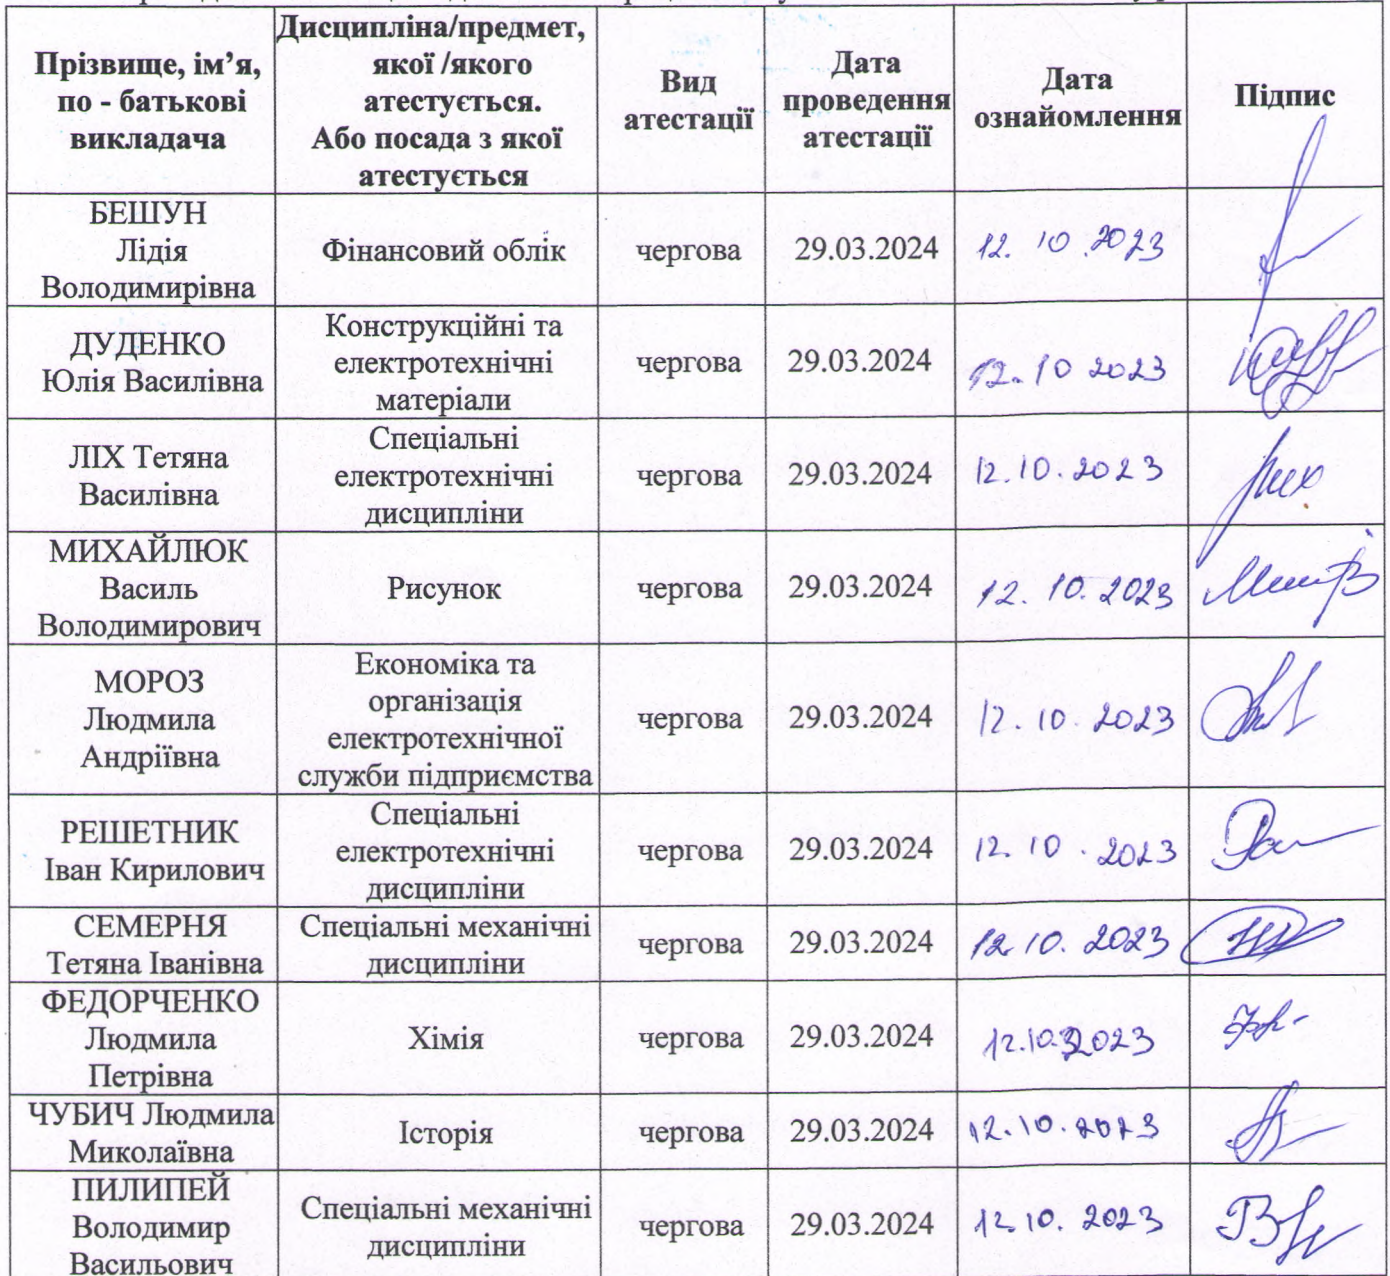 Прізвище, ім’я,
по - батькові
викладача
Дисципліна/предмет,
якої /якого
атестується.
Або посада з якої
атестується
Вид
атестації
Дата
проведення
атестації
Дата
ознайомлення
Підпис
БЕШУН
Лідія
Володимирівна
Фінансовий облік
чергова
29.03.2024
12. 10. 2023
ДУДЕНКО
Юлія Василівна
Конструкційні та
електротехнічні
матеріали
чергова
29.03.2024
12. 10 2023
ЛІХ Тетяна
Василівна
Спеціальні
електротехнічні
дисципліни
чергова
29.03.2024
12.10.2023
МИХАЙЛЮК
Василь
Володимирович
Рисунок
чергова
29.03.2024
12. 10. 2023
МОРОЗ
Людмила
Андріївна
Економіка та
організація
електротехнічної
служби підприємства
чергова
29.03.2024
12. 10. 2023
РЕШЕТНИК
Іван Кирилович
Спеціальні
електротехнічні
дисципліни
чергова
29.03.2024
12. 10. 2023
СЕМЕРНЯ
Тетяна Іванівна
Спеціальні механічні
дисципліни
чергова
29.03.2024
12.10. 2023
ФЕДОРЧЕНКО
Людмила
Петрівна
Хімія
чергова
29.03.2024
12.10.2023
ЧУБИЧ Людмила
Миколаївна
Історія
чергова
29.03.2024
12.10.2023
ПИЛИПЕЙ
Володимир
Васильович
Спеціальні механічні
дисципліни
чергова
29.03.2024
12.10. 2023